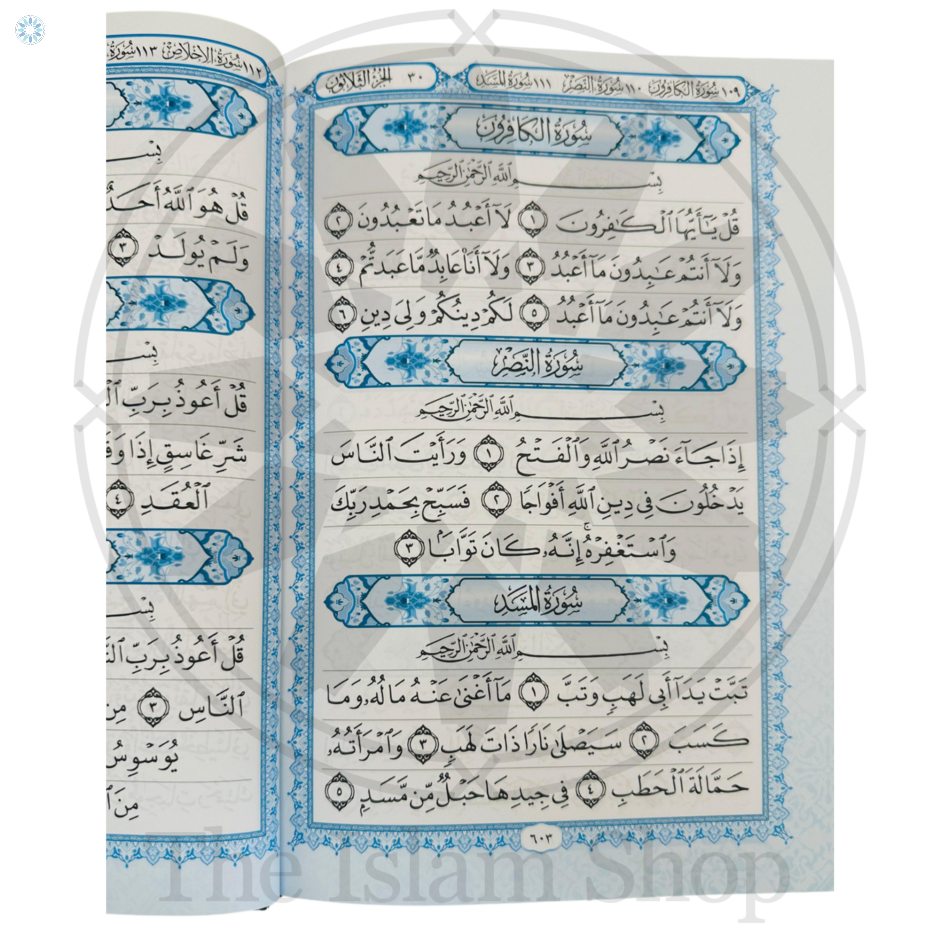 ١٠٩ سُورَةُ الكَافِرُونَ ١١٠ سُورَةُ النَّصْرِ ١١١ سُورَةُ المَسَدِ
٣٠ الجُزْءُ الثَّلَاثُونَ
سُورَةُ الكَافِرُونَ
بِسْمِ ٱللَّهِ ٱلرَّحْمَٰنِ ٱلرَّحِيمِ
قُلْ يَٰٓأَيُّهَا ٱلْكَٰفِرُونَ ١ لَآ أَعْبُدُ مَا تَعْبُدُونَ ٢
وَلَآ أَنتُمْ عَٰبِدُونَ مَآ أَعْبُدُ ٣ وَلَآ أَنَا۠ عَابِدٌ مَّا عَبَدتُّمْ ٤
وَلَآ أَنتُمْ عَٰبِدُونَ مَآ أَعْبُدُ ٥ لَكُمْ دِينُكُمْ وَلِىَ دِينِ ٦
سُورَةُ النَّصْرِ
بِسْمِ ٱللَّهِ ٱلرَّحْمَٰنِ ٱلرَّحِيمِ
إِذَا جَآءَ نَصْرُ ٱللَّهِ وَٱلْفَتْحُ ١ وَرَأَيْتَ ٱلنَّاسَ
يَدْخُلُونَ فِى دِينِ ٱللَّهِ أَفْوَاجًا ٢ فَسَبِّحْ بِحَمْدِ رَبِّكَ
وَٱسْتَغْفِرْهُ ۚ إِنَّهُۥ كَانَ تَوَّابًۢا ٣
سُورَةُ المَسَدِ
بِسْمِ ٱللَّهِ ٱلرَّحْمَٰنِ ٱلرَّحِيمِ
تَبَّتْ يَدَآ أَبِى لَهَبٍ وَتَبَّ ١ مَآ أَغْنَىٰ عَنْهُ مَالُهُۥ وَمَا
كَسَبَ ٢ سَيَصْلَىٰ نَارًا ذَاتَ لَهَبٍ ٣ وَٱمْرَأَتُهُۥ
حَمَّالَةَ ٱلْحَطَبِ ٤ فِى جِيدِهَا حَبْلٌ مِّن مَّسَدٍۭ ٥
٦٠٣
١١٢ سُورَةُ الإِخْلَاصِ ١١٣ سُورَةُ
بِسْ
قُلْ هُوَ ٱللَّهُ أَحَدٌ
وَلَمْ يُولَدْ ٣
بِسْ
قُلْ أَعُوذُ بِرَبِّ
شَرِّ غَاسِقٍ إِذَا
ٱلْعُقَدِ ٤
بِسْ
قُلْ أَعُوذُ بِرَبِّ
ٱلنَّاسِ ٣ مِن
يُوَسْوِسُ
مِنَ
The Islam Shop